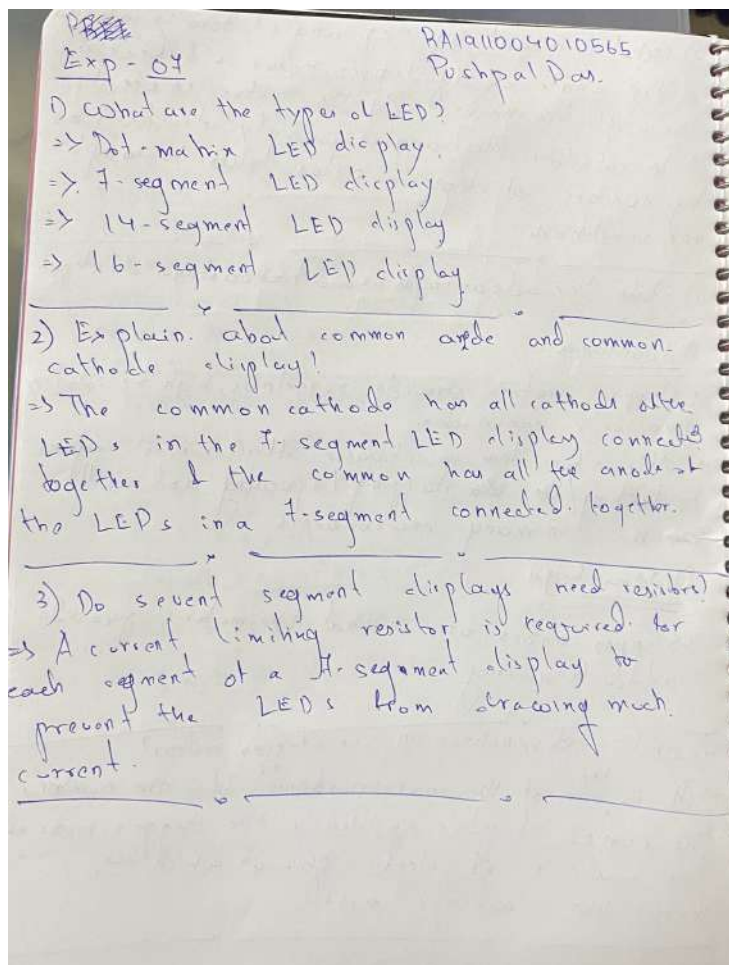 RA1911004010565
Exp - 07
Pushpal Das.
1) What are the types of LED?
=> Dot-matrix LED display.
=> 7-segment LED display
=> 14-segment LED display
=> 16-segment LED display
2) Explain. about common anode and common-
cathode display!
=> The common cathode has all cathods of the
LEDs in the 7-segment LED display connected
together & the common has all the anode of
the LEDs in a 7-segment connected. together.
3) Do sevent segment displays need resistors?
=> A current limiting resistor is required for
each segment of a 7-segment display to
prevent the LEDs from drawing much.
current.